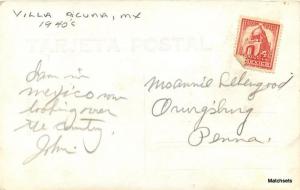 VILLA ACUNA, MX
1940'S
TARJETA POSTAL
I am in
mexico now
looking over
the country,
John.
Orwigsburg
Penna.
Matchsets